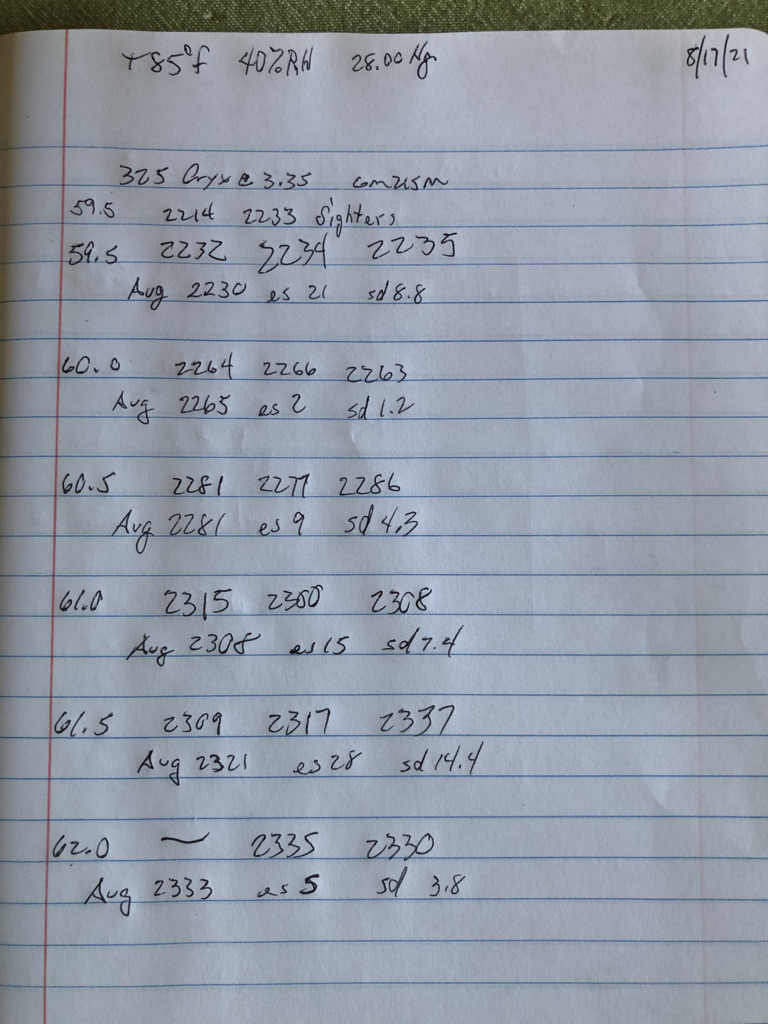 +85°f 40%RH 28.00 Hg 8/17/21
325 Oryx @ 3.35 Gm215M
59.5 2214 2233 Sighters
59.5 2232 2234 2235
Avg 2230 es 21 sd 8.8
60.0 2264 2266 2263
Avg 2265 es 2 sd 1.2
60.5 2281 2277 2286
Avg 2281 es 9 sd 4.3
61.0 2315 2300 2308
Avg 2308 es 15 sd 7.4
61.5 2309 2317 2337
Avg 2321 es 28 sd 14.4
62.0 — 2335 2330
Avg 2333 es 5 sd 3.8